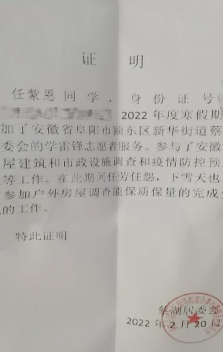 证 明
任蒙恩同学，身份证号
2022年度寒假期
加了安徽省阜阳市颍东区新华街道蔡
委会的学雷锋志愿者服务。参与了安徽
屋建筑和市政设施调查和疫情防控预
等工作。在此期间任劳任怨，下雪天也
参加户外房屋调查能保质保量的完成
的工作。
特此证明
蔡湖居委会
2022年2月20日